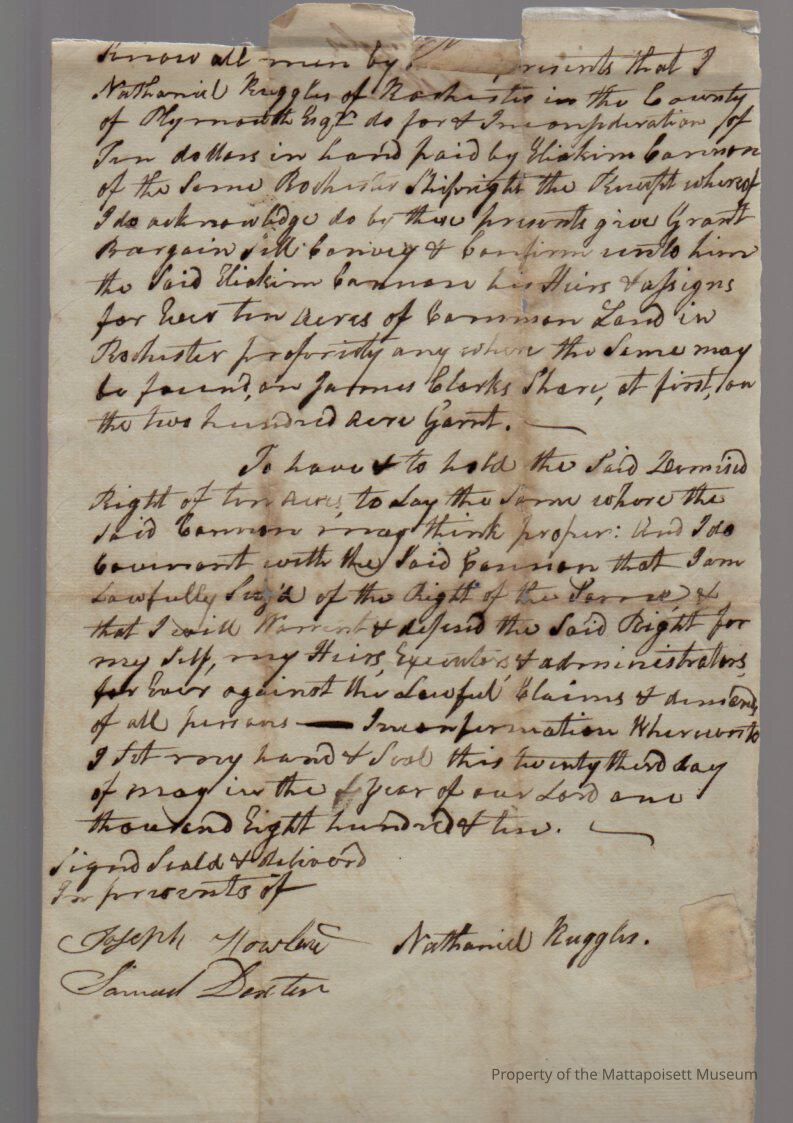 Know all men by presents that I
Nathaniel Ruggles of Rochester in the County
of Plymouth Esqr do for & In Consideration of
Ten dollars in hand paid by Eliakim Cannon
of the Same Rochester Shipwright the Receipt whereof
I do acknowledge do by these presents give Grant
Bargain Sell Convey & Confirm unto him
the Said Eliakim Cannon his Heirs & assigns
for Ever ten acres of Common Land in
Rochester propriety any where the Same may
be found, on James Clarks Share, at first, on
the two hundred acre Garnt.
To have & to hold the Said Demised
Right of ten acres, to Lay the Same where the
Said Cannon may think proper: And I do
Covenant with the Said Cannon that I am
Lawfully of the Right of the Same &
that I will Warrent & defend the Said Right for
my Self, my Heirs, Executors & administrators,
for Ever against the Lawful Claims & demands
of all persons — In Confirmation Whereunto
I Set my hand & Seal this twenty third day
of may in the year of our Lord one
thousand Eight hundred & ten.
Signd Seald & deliverd
In presents of
Joseph Nathaniel Ruggles.
Samuel Dexter
Property of the Mattapoisett Museum